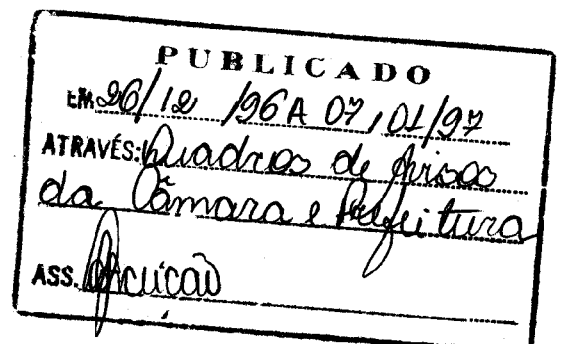 PUBLICADO
EM 26/12/96 A 07/01/97
ATRAVÉS: Quadros de Avisos
da Câmara e Prefeitura
ASS.